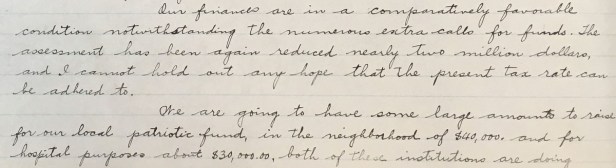 Our finances are in a comparatively favorable
condition notwithstanding the numerous extra calls for funds. The
assessment has been again reduced nearly two million dollars,
and I cannot hold out any hope that the present tax rate can
be adhered to.
We are going to have some large amounts to raise
for our local patriotic fund, in the neighborhood of $40,000. and for
hospital purposes about $30,000.00, both of these institutions are doing